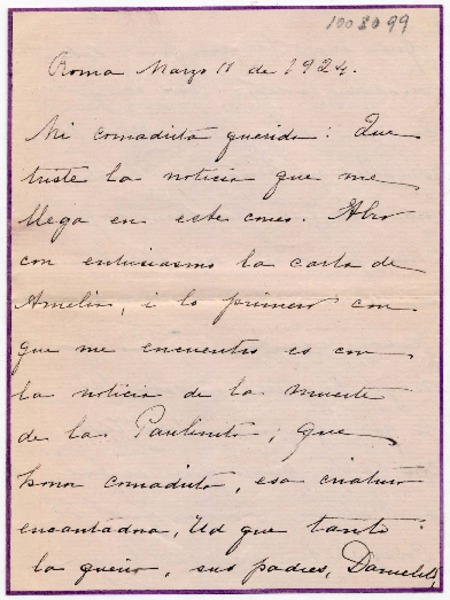 1003099
Roma Marzo 11 de 1924.
Mi comadrita querida: Que
triste la noticia que me
llega en este correo. Abro
con entusiasmo la carta de
Amelia, i lo primero con
que me encuentro es con
la noticia de la muerte
de la Paulinita; que
horror comadrita, esa criatura
encantadora, Ud que tanto
la queria, sus padres,